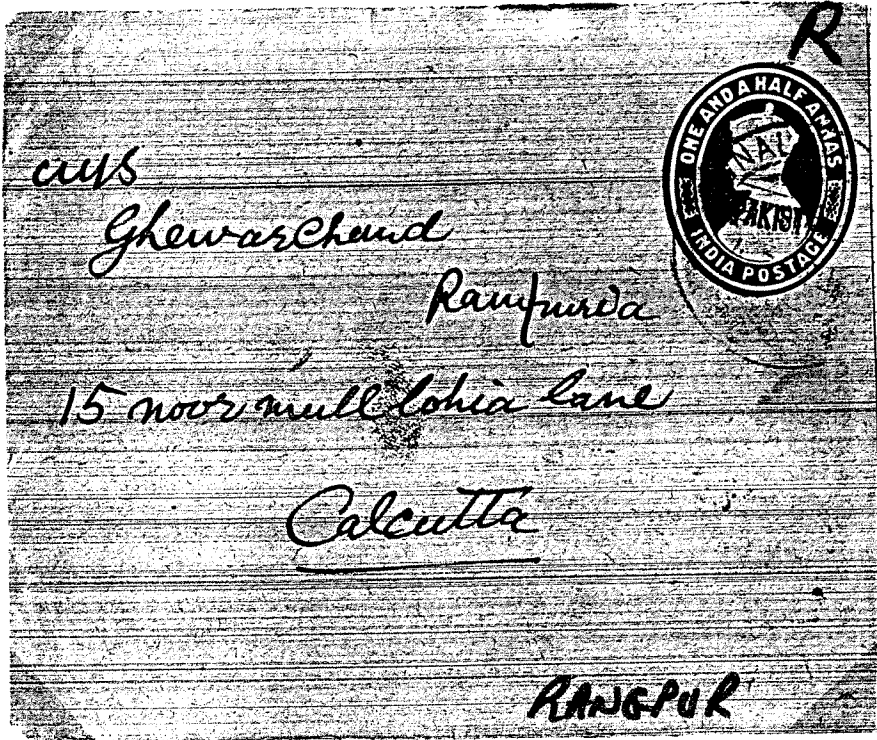 R
ONE AND A HALF ANNAS
INDIA POSTAGE
PAKIST
Ghewarchand
Rampuria
15 noor mull lohia lane
Calcutta
RANGPUR